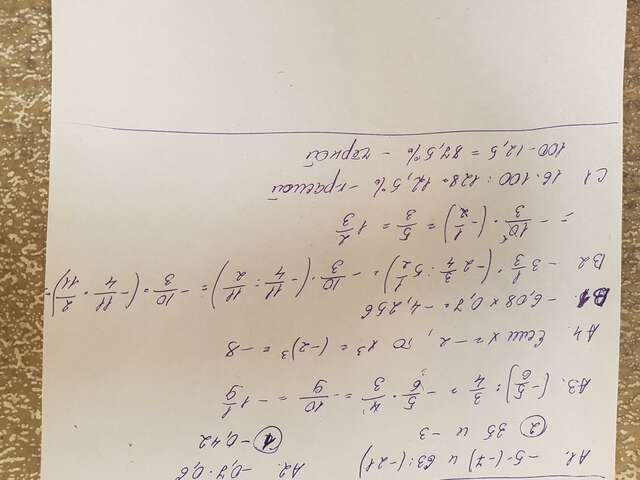 A1. -5·(-7) и 63:(-21) A2. -0,7·0,6
② 35 и -3 ① -0,42
A3. (-5/6) : 3/4 = -5/6 · 4/3 = -10/9 = -1 1/9
A4. Если x = -2, то x³ = (-2)³ = -8
B1. -6,08 × 0,7 = -4,256
B2 -3 1/3 · (-2 3/4 : 5 1/2) = -10/3 · (-11/4 : 11/2) = -10/3 · (-11/4 · 2/11) =
= -10/3 · (-1/2) = 5/3 = 1 2/3
C1 16·100:128 = 12,5% - красной
100-12,5 = 87,5% - черной